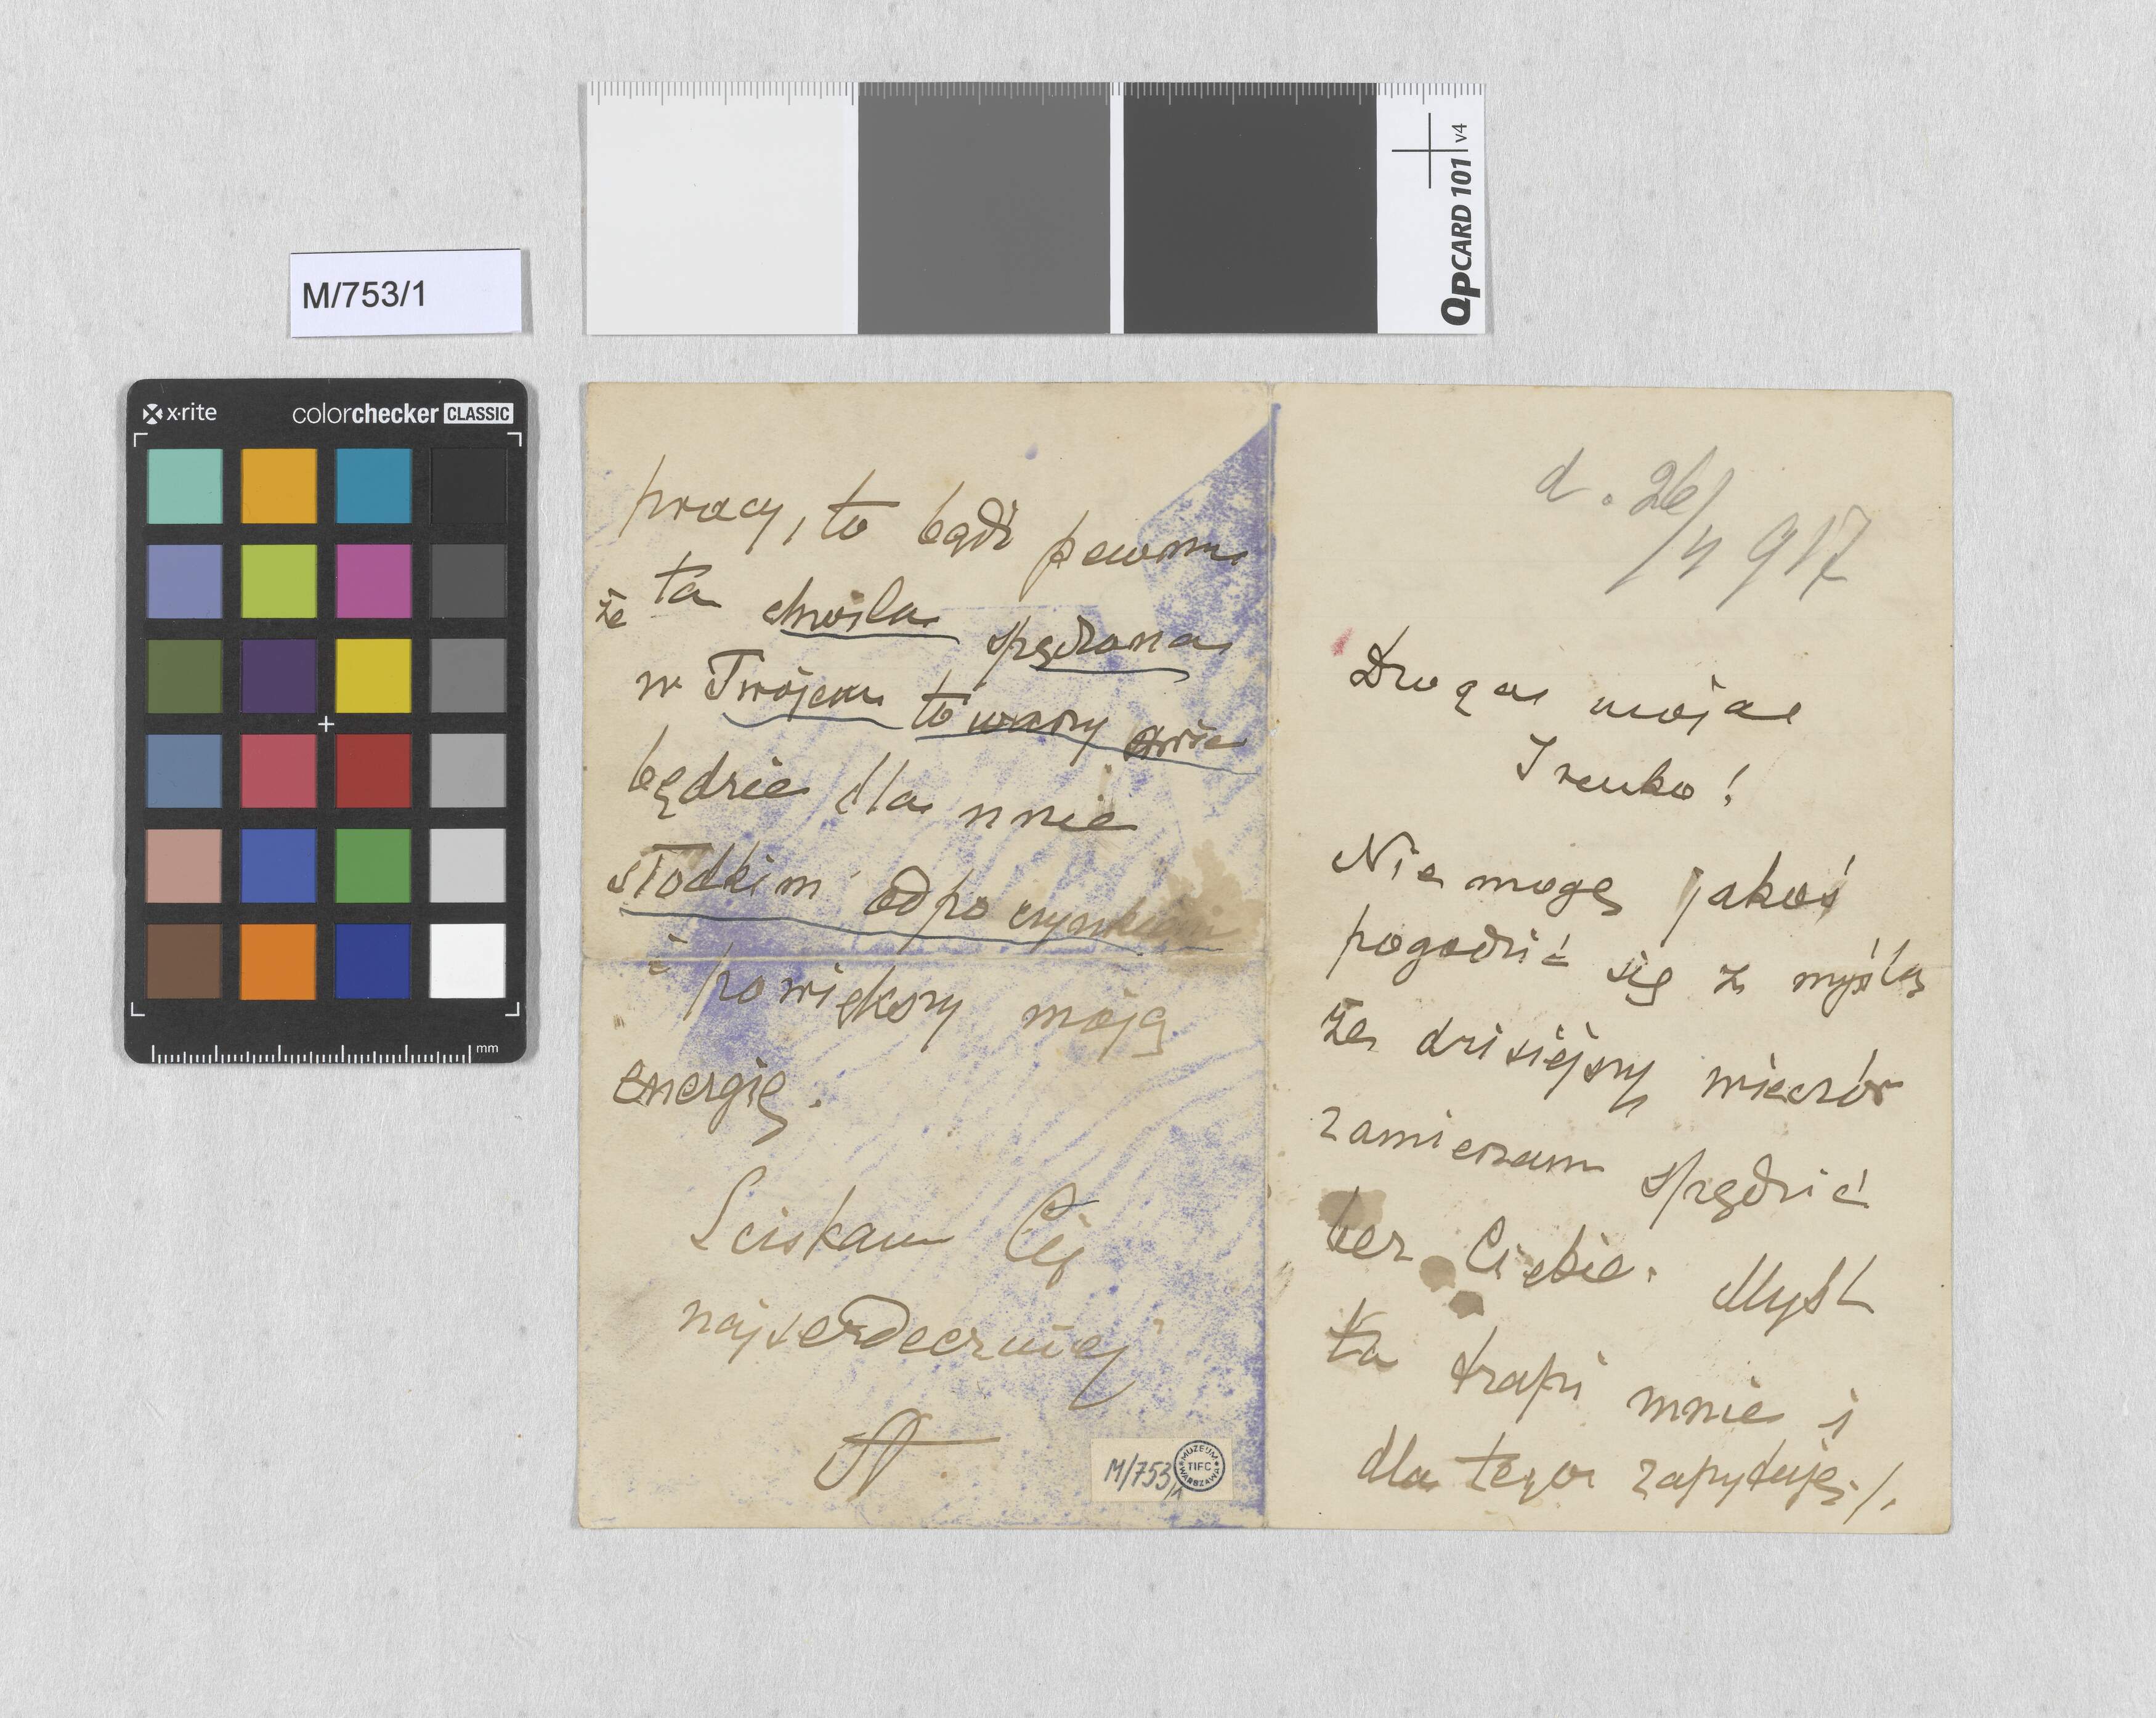 M/753/1
QPCARD 101 v4
x·rite colorchecker CLASSIC
mm
d. 26/4 917
Droga moja
Irenko!
Nie mogę jakoś
pogodzić się z myślą
że dzisiejszy wieczór
zamierzam spędzić
bez Ciebie. Myśl
ta trapi mnie i
dla tego zapytuję ./.
pracy, to bądź pewną
że ta chwila spędzona
w Twojem towarzystwie
będzie dla mnie
słodkim odpoczynkiem
i powiększy moją
energię.
Sciskam Cię
najserdeczniej
M/753/1
MUZEUM TIFC WARSZAWA